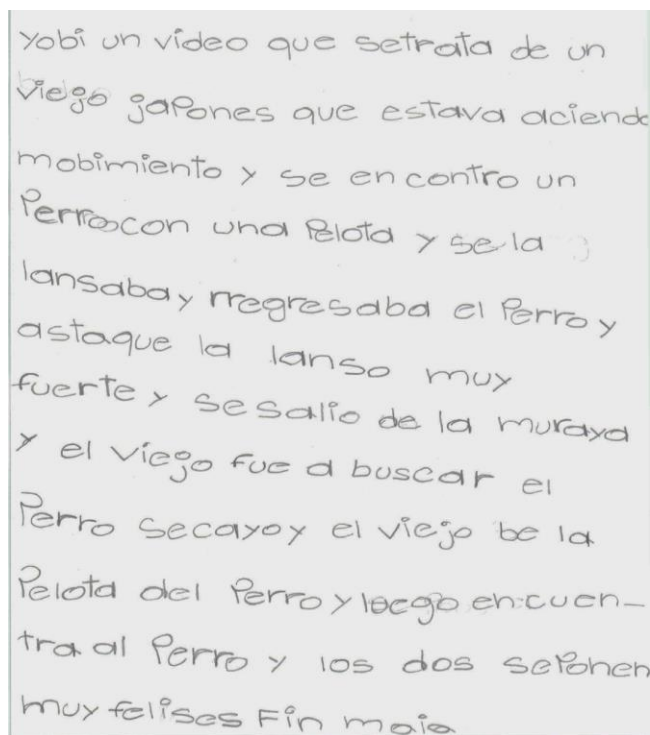 yobi un video que setrata de un
viego japones que estava aciendo
mobimiento y se en contro un
Perro con una Pelota y se la
lansaba y rregresaba el Perro y
astaque la lanso muy
fuerte y sesalio de la muraya
y el viejo fue a buscar el
Perro secayo y el viejo be la
Pelota del Perro y luego en cuen-
tra al Perro y los dos seponen
muy felises Fin